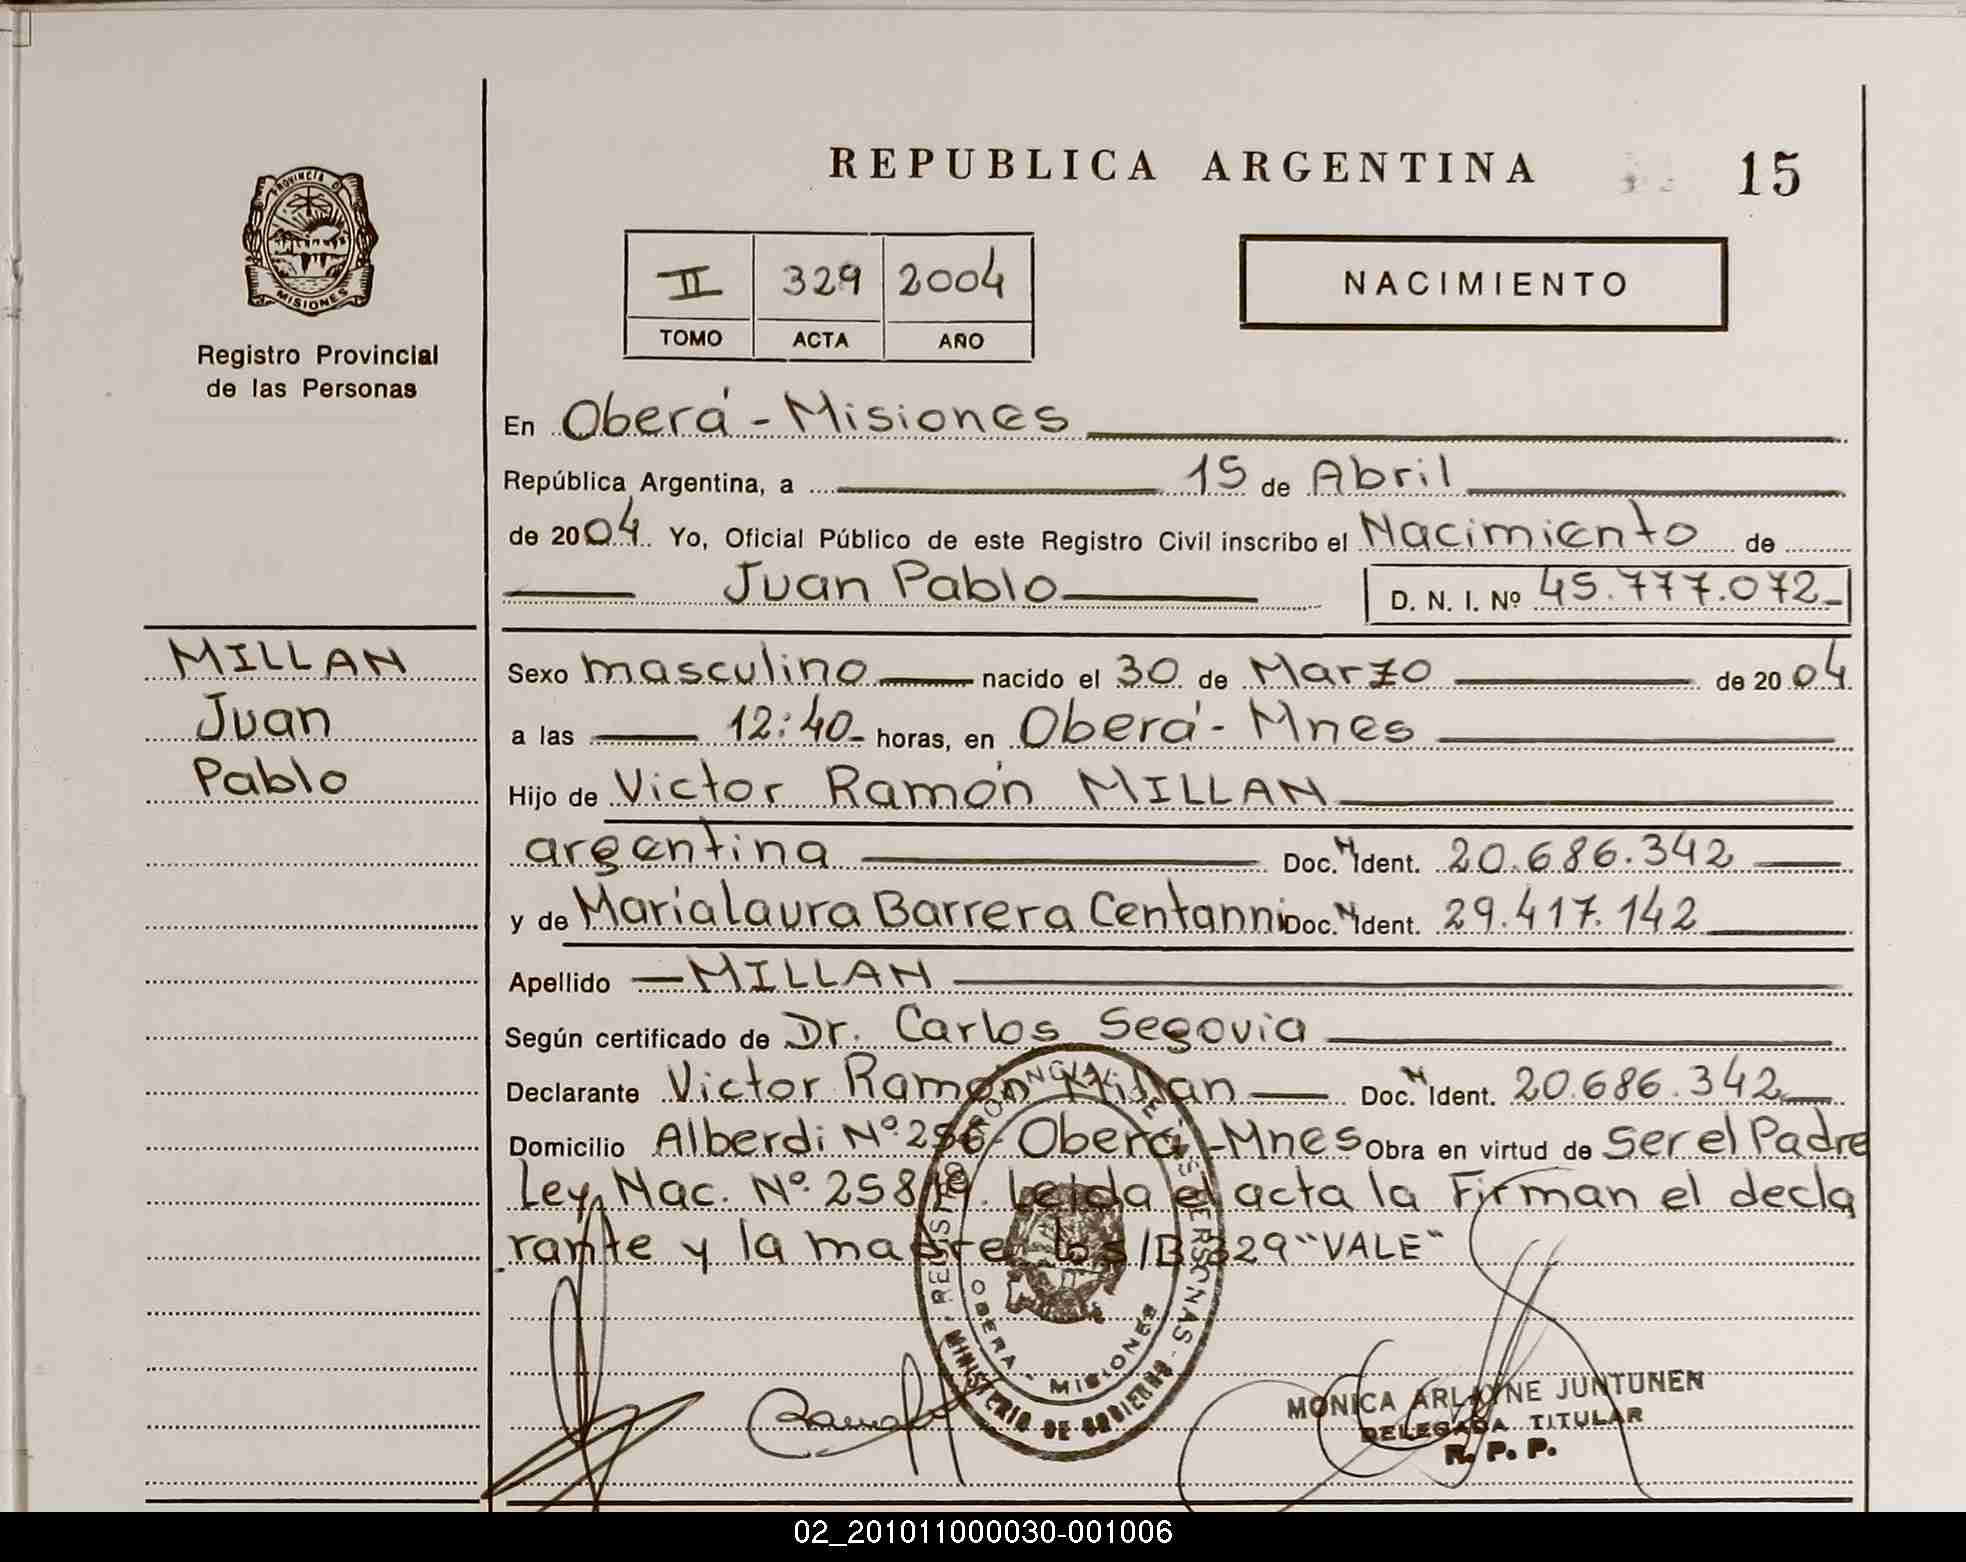 REPUBLICA ARGENTINA
15
PROVINCIA DE
MISIONES
Registro Provincial
de las Personas
II 329 2004
TOMO ACTA AÑO
NACIMIENTO
En Oberá - Misiones
República Argentina, a 15 de Abril
de 2004. Yo, Oficial Público de este Registro Civil inscribo el Nacimiento de
Juan Pablo D. N. I. Nº 45.777.072
MILLAN
Juan
Pablo
Sexo masculino nacido el 30 de Marzo de 2004
a las 12:40 horas, en Oberá - Mnes
Hijo de Victor Ramón MILLAN
argentina Doc. N Ident. 20.686.342
y de María Laura Barrera Centanni Doc. N Ident. 29.417.142
Apellido MILLAN
Según certificado de Dr. Carlos Segovia
Declarante Victor Ramón Millan Doc. N Ident. 20.686.342
Domicilio Alberdi Nº 256 - Oberá - Mnes Obra en virtud de Ser el Padre
Ley Nac. Nº 25819. Leída el acta la Firman el decla
rante y la madre los/B 329 "VALE"
REGISTRO PROVINCIAL DE LAS PERSONAS
OBERA - MISIONES
MINISTERIO DE GOBIERNO
MONICA ARLAYNE JUNTUNEN
DELEGADA TITULAR
R. P. P.
02_201011000030-001006